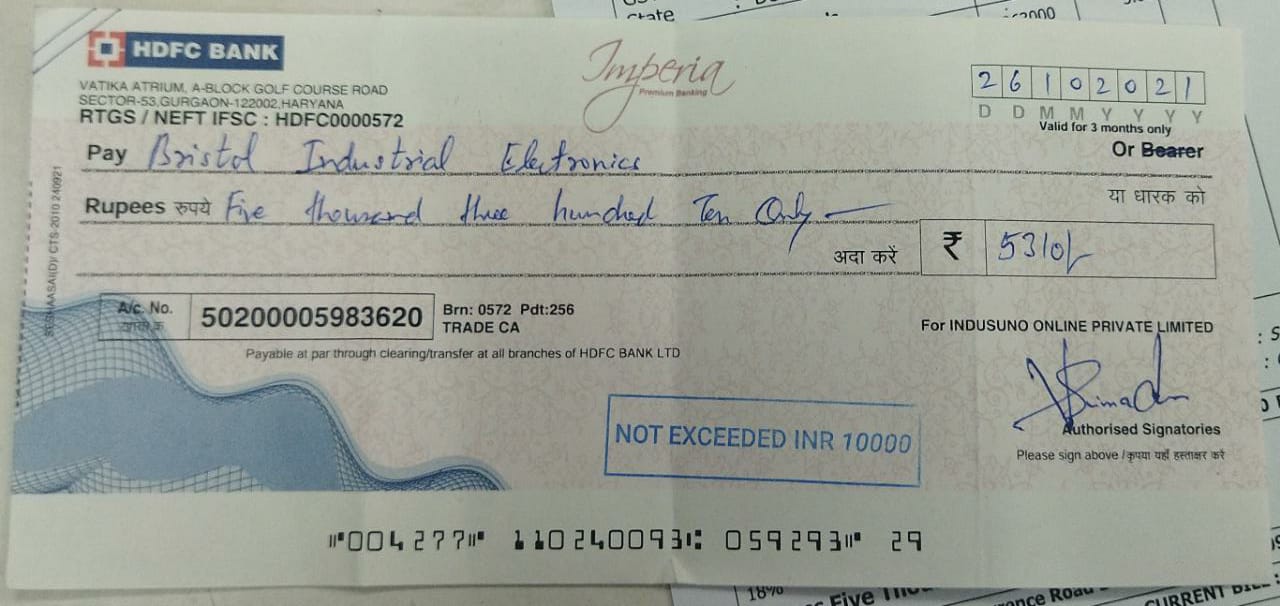 State
HDFC BANK
Imperia
Premium Banking
VATIKA ATRIUM, A-BLOCK GOLF COURSE ROAD
SECTOR-53,GURGAON-122002,HARYANA
RTGS / NEFT IFSC : HDFC0000572
26102021
D D M M Y Y Y Y
Valid for 3 months only
Pay Bristol Industrial Electronics Or Bearer
Rupees रुपये Five thousand three hundred Ten Only या धारक को
अदा करें ₹ 5310/-
CTS-2010 240921
A/c. No. 50200005983620 Brn: 0572 Pdt:256
TRADE CA
Payable at par through clearing/transfer at all branches of HDFC BANK LTD
For INDUSUNO ONLINE PRIVATE LIMITED
NOT EXCEEDED INR 10000
Authorised Signatories
Please sign above / कृपया यहाँ हस्ताक्षर करें
⑈004277⑈ 110240093⑆ 059293⑈ 29
18%
Five
CURRENT